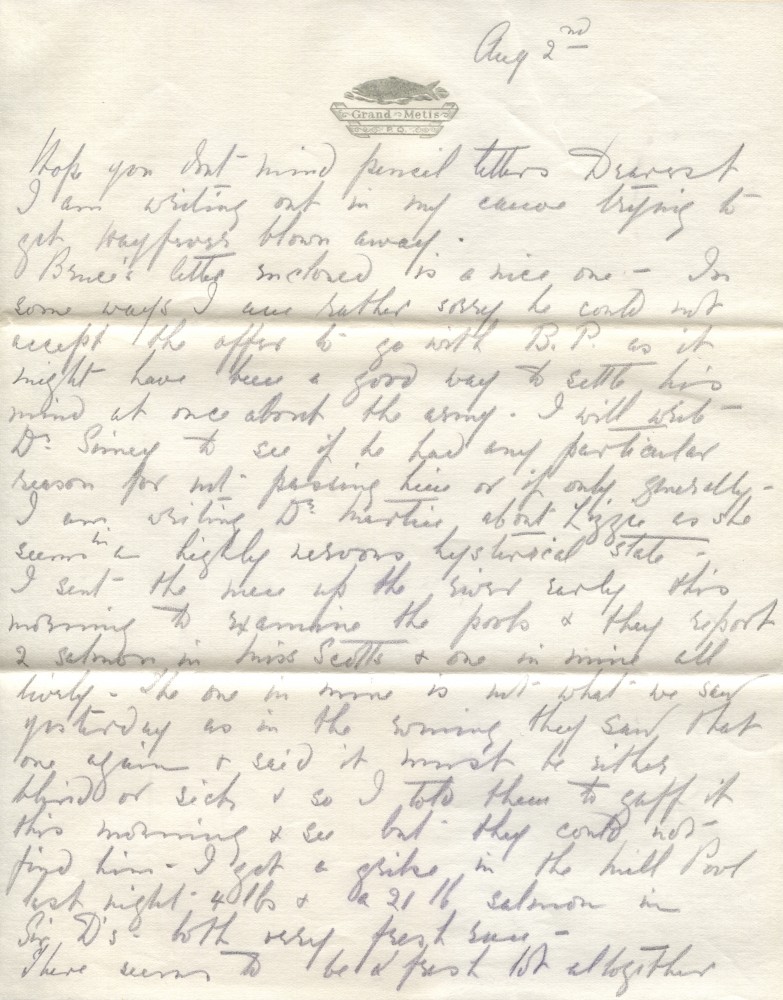 Aug 2nd
Grand Metis
P.Q.
Hope you dont mind pencil letters Dearest
I am writing out in my canoe trying to
get Hayfever blown away.
Bruce's letter enclosed is a nice one - In
some ways I am rather sorry he could not
accept the offer to go with B.P. as it
might have been a good way to settle his
mind at once about the army. I will write
Dr to see if he had any particular
reason for not passing him or if only generally -
I am writing Dr Martin about Lizzie as she
seems in a highly nervous hysterical state -
I sent the men up the river early this
morning to examine the pools & they report
2 salmon in Miss Scotts & one in mine all
lively - The one in mine is not what we saw
yesterday as in the evening they saw that
one again & said it must be either
blind or sick & so I told them to gaff it
this morning & see but they could not
find him - I got a grilse in the Mill Pool
last night 4 lbs & a 21 lb salmon in
Sir D's - both very fresh run -
There seems to be a fresh lot altogether